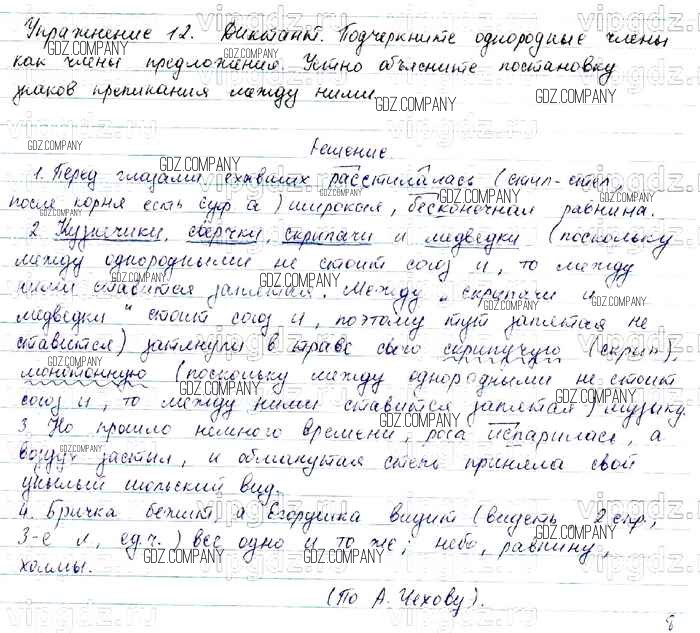 Упражнение 12. Диктант. Подчеркните однородные члены
как члены предложения. Устно объясните постановку
знаков препинания между ними.
Решение.
1. Перед глазами ехавших расстилалась (стил-стел,
после корня есть суф а) широкая, бесконечная равнина.
2 Кузнечики, сверчки, скрипачи и медведки (поскольку
между однородными не стоит союз и, то между
ними ставится запятая. Между "скрипачи и
медведки" стоит союз и, поэтому тут запятая не
ставится) затянули в траве свою скрипучую (скрип),
монотонную (поскольку между однородными не стоит
союз и, то между ними ставится запятая) музыку.
3. Но прошло немного времени, роса испарилась, а
воздух застыл, и обманутая степь приняла свой
унылый июльский вид.
4. Бричка бежит, а Егорушка видит (видеть 2 спр,
3-е л, ед.ч.) все одно и то же; небо, равнину,
холмы.
(По А. Чехову).
8
GDZ.COMPANY
vipgdz.ru